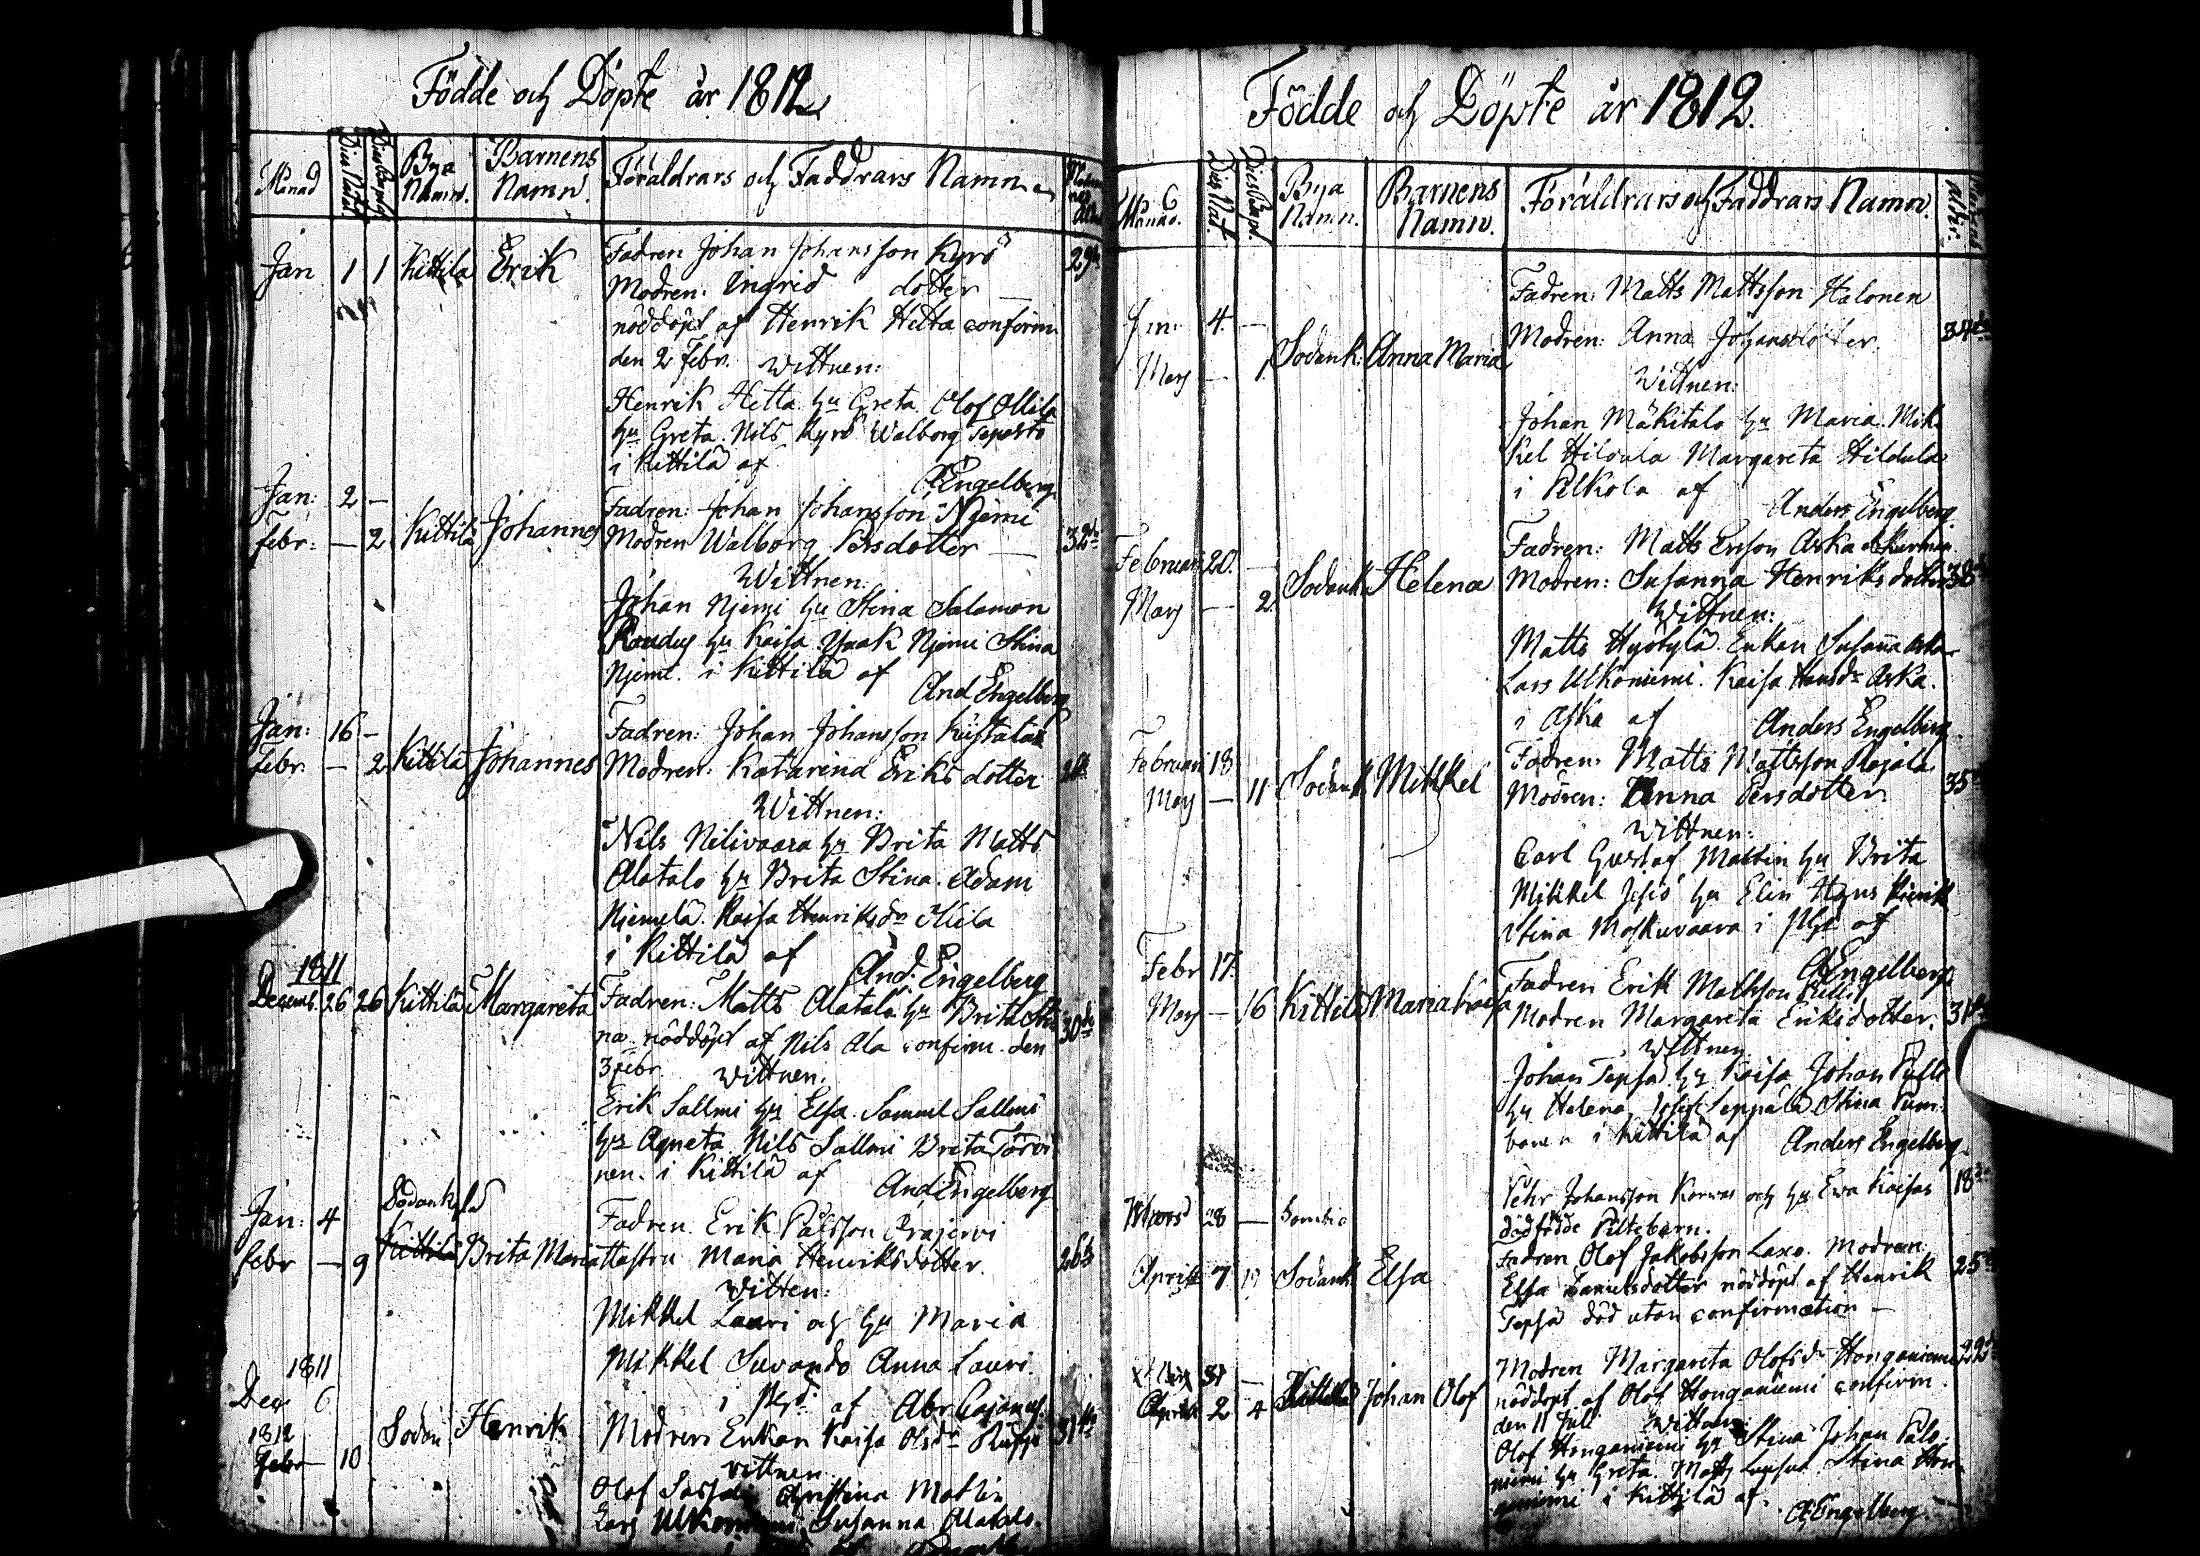 Födde och Döpte år 1812
Månad Dies Nat. Bya Namn. Barnens Namn. Föräldrars och Faddrars Namn
Jan 1 1 Kittilä Erik Fadren Johan Johansson Kyrö 29
Modren: Ingrid dotter
nöddöpt af Henrik Hetta confirm.
den 2 Febr. Wittnen:
Henrik Hetta hu Greta Olof Ollila
hu Greta. Nils Kyrö Walborg
i Kittilä af
A Engelberg
Jan: 2 –
Febr: – 2 Kittilä Johannes
Fadren: Johan Johansson Njemi
Modren Walborg Persdotter 32
Wittnen:
Johan Njemi hu Stina Salomon
hu Kaisa Isaak Njemi Stina
Njemi. i Kittilä af
And Engelberg
Jan: 16 –
Febr: – 2 Kittilä Johannes
Fadren: Johan Johansson
Modren: Katarina Eriksdotter
Wittnen:
Nils Nilivaara hu Brita Matts
Alatalo hu Brita Stina. Adam
Njemelä. Kaisa Henriksdr
i Kittilä af
And: Engelberg
1811
Decemb. 26 26 Kittilä Margareta
Fadren: Matts Alatalo hu Brita Sti
na. nöddöpt af Nils Ala confirm. den 30
3 febr Wittnen:
Erik Sallmi hu Elsa. Samuel Sallmi
hu Agneta Nils Sallmi Brita Törvi
nen. i Kittilä af
And Engelberg
Jan: 4 Sodankylä
Febr – 9 Kittilä Brita Maria
Fadren. Erik Pålsson
Maria Henriksdotter. 26
Witten:
Mikkel Lauri och hu Maria
Mikkel Suvando Anna Lauri
i af Abr. Cajanus
1811
Dec 6
1812
Febr 10 Sodan Henrik
Modren Enkan Kaisa Olsdr 31
vittnen
Olof Christina Matlin
Lars Susanna Alatalo.
Födde och Döpte år 1812.
Månad. Dies Nat. Dies Bapt. Bya Namn. Barnens Namn. Föräldrars och Faddrars Namn.
4. –
Mars – 1 Sodank: Anna Maria
Fadren: Matts Mattsson Halonen
Modren: Anna Johansdotter. 34
Wittnen:
Johan Mäkitalo hu Maria. Mik
kel Hildula Margareta Hildula
i Pelkola af
Anders Engelberg
Februari 20. –
Mars – 2. Sodank. Helena
Fadren: Matts Ersson Aska
Modren: Susanna Henriksdotter 38
Wittnen:
Matts Hyötylä. Enkan Susanna Aska
Lars Ulkoniemi. Kaisa Aska.
i Aska af
Anders Engelberg
Februari 18
Mars – 11 Sodank Mikkel
Fadren: Matts Mattsson Rajala
Modren: Anna Persdotter. 35
Wittnen:
Carl Gustaf Matlin hu Brita
Mikkel hu Elin
Stina Moskuvaara i af
A Engelberg
Febr 17.
Mars – 16 Kittilä Maria Kaisa
Fadren Erik Mathsson
Modren Margareta Eriksdotter. 31
Wittnen.
Johan Tepsa. hu Kaisa Johan
hu Helena, Seppälä Stina
i Kittilä af Anders Engelberg
Mars 28 –
Pehr Johansson Korwa och hu Ewa Kaisas 18
dödfödde Piltebarn.
April 7 Sodank Elsa
Fadren Olof Jakobsson Laxo. Modren
Elsa Danielsdotter nöddöpt af Henrik 25
Tepsa död utan confirmation –
31 –
April 2 4 Kittilä Johan Olof
Modren Margareta Olofsdr Honganiemi 22
nöddöpt af Olof Honganiemi confirm.
den 11 Juli Wittnen
Olof Honganiemi hu Stina Johan Palo
niemi hu Greta. Stina Hon
ganiemi i Kittilä af.
A Engelberg